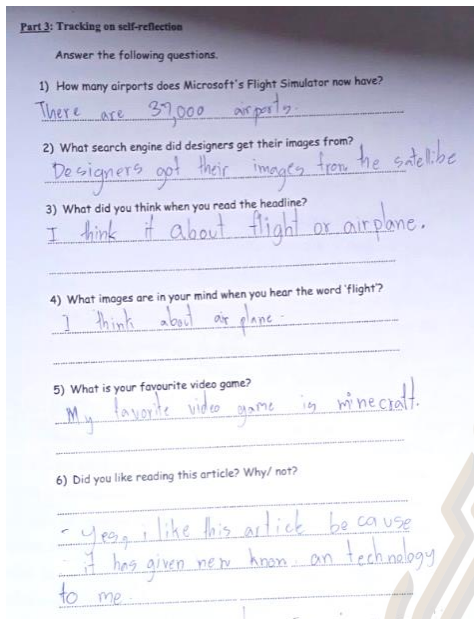 Part 3: Tracking on self-reflection
Answer the following questions.
1) How many airports does Microsoft's Flight Simulator now have?
There are 37,000 airports.
2) What search engine did designers get their images from?
Designers got their images from the satellibe
3) What did you think when you read the headline?
I think it about flight or airplane.
4) What images are in your mind when you hear the word 'flight'?
I think about air plane.
5) What is your favourite video game?
My favorite video game is minecraft.
6) Did you like reading this article? Why/ not?
- Yes, i like this artick because
it has given new know an technology
to me